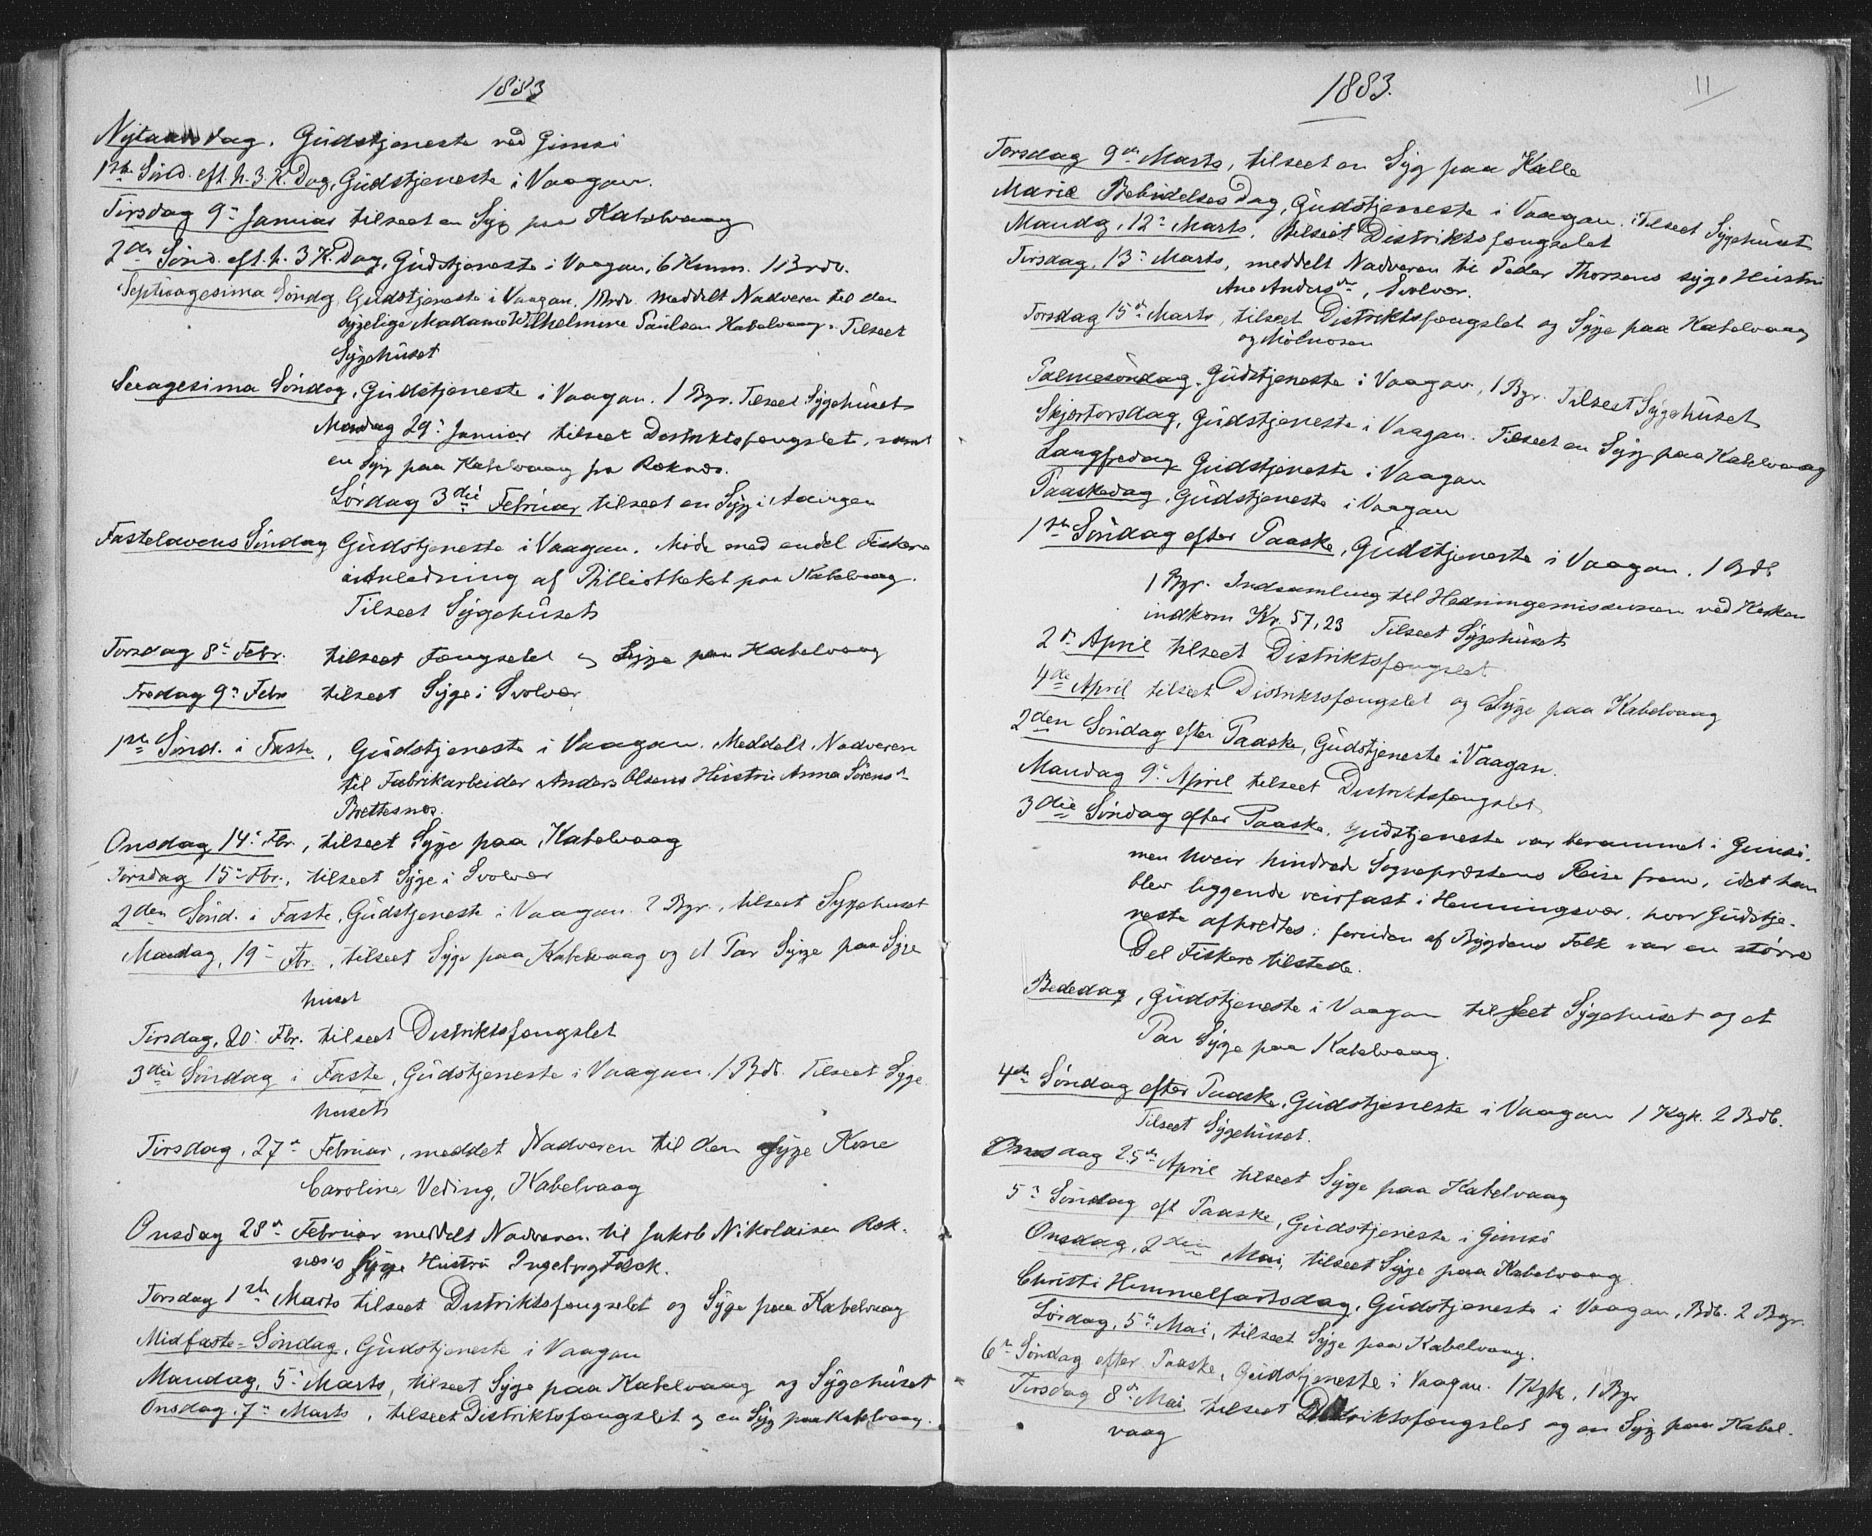 1883
Nytaarsdag. Gudstjeneste ved Gimsø
1ste Sönd. eft. h. 3 K. Dag, Gudstjeneste i Vaagan.
Tirsdag 9de Januar tilseet en Syg paa Kabelvaag
2den Sönd. eft. h. 3 K. Dag, Gudstjeneste i Vaagan, 6 Kmm. 1 Brdv.
Septuagesima Söndag, Gudstjeneste i Vaagan. 1 Brdv. meddelt Nadveren til den
sygelige Madame Wilhelmine Paulsen Kabelvaag. Tilseet
Sygehuset
Sexagesima Söndag, Gudstjeneste i Vaagan. 1 Bgr. Tilseet Sygehuset
Mandag 29de Januar tilseet Distriktsfængslet, samt
en Syg paa Kabelvaag fra Røknes.
Lördag 3die Februar tilseet en Syg i
Fastelavens Söndag Gudstjeneste i Vaagan. Möde med endel Fiskere
i Anledning af Bibliotheket paa Kabelvaag.
Tilseet Sygehuset
Torsdag 8de Febr. tilseet Fængselet og Syge paa Kabelvaag
Fredag 9de Febr tilseet Syge i Svolvær
1ste Sönd. i Faste, Gudstjeneste i Vaagan. Meddelt Nadveren
til Fabrikarbeider Anders Olsens Hustru Anna Sörensdr
Brettesnes.
Onsdag 14de Fbr., tilseet Syge paa Kabelvaag
Torsdag 15de Fbr., tilseet Syge i Svolvær
2den Sönd. i Faste, Gudstjeneste i Vaagan. 2 Bgr., tilseet Sygehuset
Mandag, 19de Fbr., tilseet Syge paa Kabelvaag og et Par Syge paa Syge
huset
Tirsdag, 20de Fbr. tilseet Distriktsfængslet
3die Söndag i Faste, Gudstjeneste i Vaagan. 1 Bdb. Tilseet Syge
huset
Tirsdag, 27de Februar, meddet Nadveren til den syge Kone
Caroline Veding, Kabelvaag
Onsdag 28de Februar meddelt Nadveren til Jakob Nikolaisen Røk-
næs's syge Hustru Ingeborg Falck.
Torsdag 1ste Marts tilseet Distriktsfængselet og Syge paa Kabelvaag
Midfaste=Söndag, Gudstjeneste i Vaagan
Mandag, 5te Marts, tilseet Syge paa Kabelvaag og Sygehuset
Onsdag, 7de Marts, tilseet Distriktsfængslet og en Syg paa Kabelvaag.
1883.
11
Torsdag 9de Marts, tilseet en Syg paa Kalle
Marie Bebudelses Dag, Gudstjeneste i Vaagan. Tilseet Sygehuset
Mandg, 12te Marts. tilseet Distriktsfængselet
Tirsdag, 13de Marts, meddelt Nadveren til Peder Thorsens syge Hustru
Ane Andersdr, Svolvær.
Torsdag 15de Marts, tilseet Distriktsfængslet og Syge paa Kabelvaag
og Mölnosen
Palmesöndag. Gudstjeneste i Vaagan, 1 Bgr. Tilseet Sygehuset
Skjærtorsdag, Gudstjeneste i Vaagan. Tilseet en Syg paa Kabelvaag
Langfredag Gudstjeneste i Vaagan
Paaskedag, Gudstjeneste i Vaagan
1ste Söndag efter Paaske, Gudstjeneste i Vaagan. 1 Bdb
1 Bgr. Indsamling til Hedningemissionen ved Kirken
indkom Kr. 57,23 Tilseet Sygehuset
2den April tilseet Distriktsfængslet
4de April tilseet Distriktsfængslet og Syge paa Kabelvaag
2den Söndag efter Paaske, Gudstjeneste i Vaagan.
Mandag 9de April tilseet Distriktsfængslet
3die Söndag efter Paaske. Gudstjeneste var berammet i Gimsö.
men Uveir hindrede Sognepræstens Reise frem, idet han
blev liggende veirfast i Henningsvær, hvor Gudstje-
neste afholdtes; foruden af Bygdens Folk var en större
Del Fiskere tilstede.
Bededag, Gudstjeneste i Vaagan tilseet Sygehuset og et
Par Syge paa Kabelvaag.
4de Söndag efter Paaske, Gudstjeneste i Vaagan 1 Kgk. 2 Bdb.
Tilseet Sygehuset.
Onsdag 25de April tilseet Syge paa Kabelvaag
5te Söndag eft Paaske, Gudstjeneste i Gimsö
Onsdag, 2den Mai, tilseet Syge paa Kabelvaag.
Christi Himmelfartsdag, Gudstjeneste i Vaagan, Bdb. 2 Bgr.
Lördag, 5te Mai, tilseet Syge paa Kabelvaag.
6te Söndag efter Paaske, Gudstjeneste i Vaagan. 1 Kgk. 1 Bgr
Tirsdag 8de Mai tilseet Distriktsfængslet og en Syg paa Kabel-
vaag